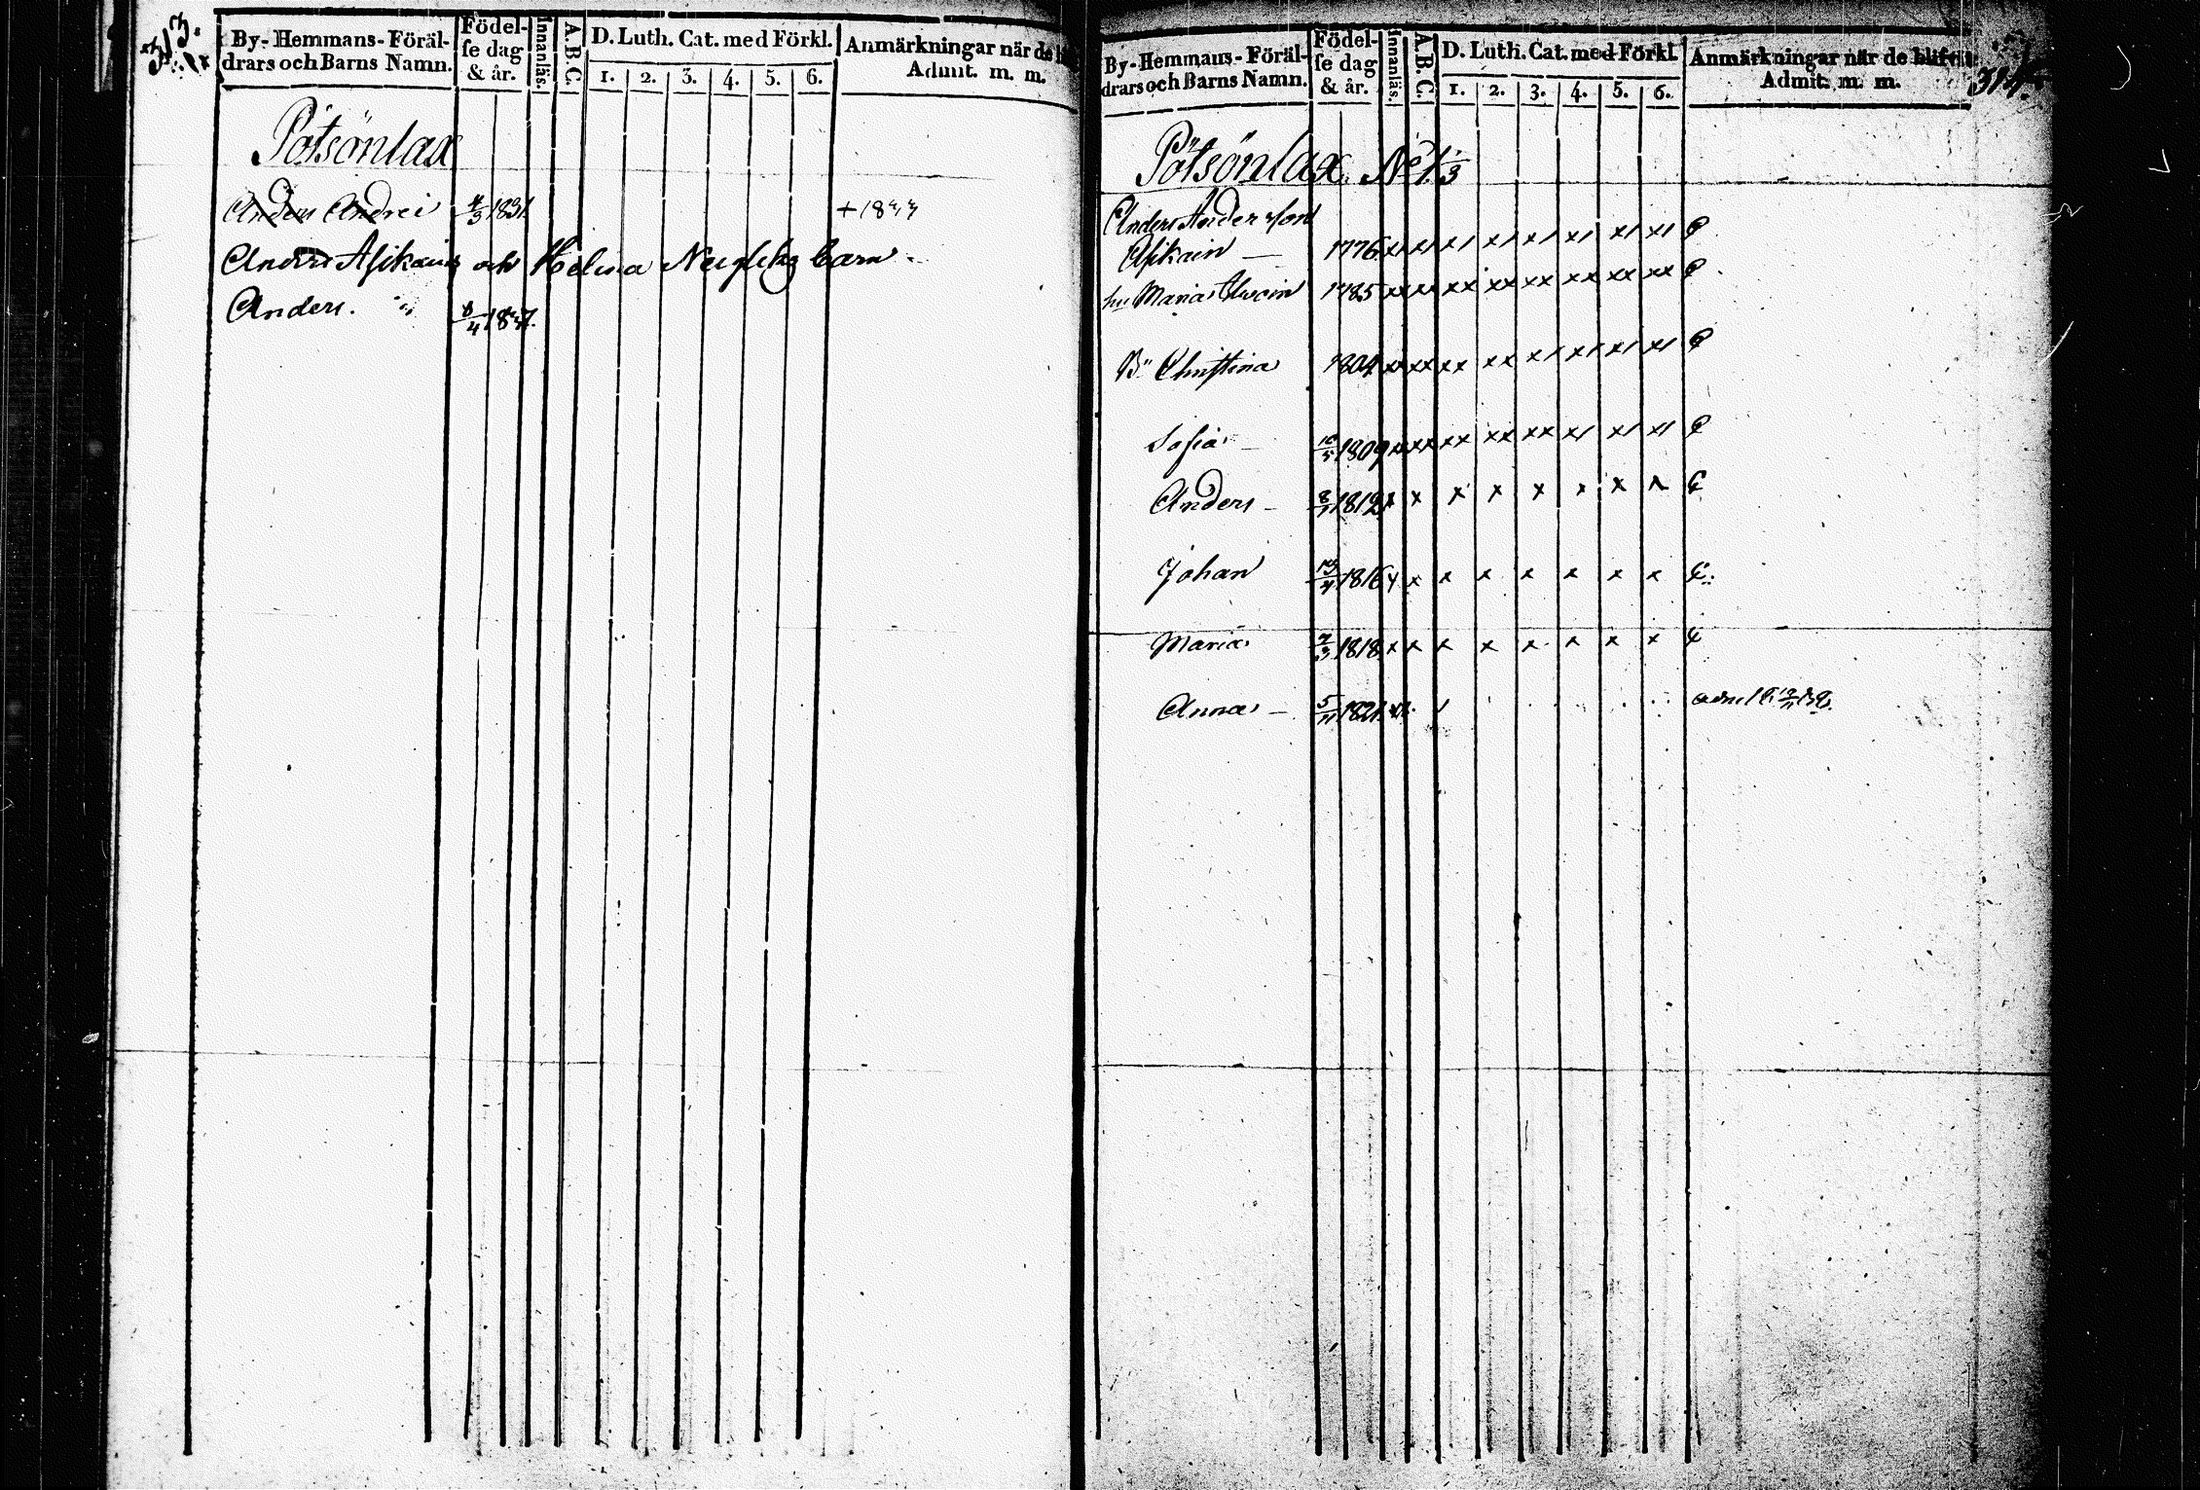 313.
By-Hemmans-Föräl-
drars och Barns Namn.
Födel-
se dag
& år.
Innanläs.
A.B.C.
D. Luth. Cat. med Förkl.
1. 2. 3. 4. 5. 6.
Anmärkningar när de
Admit. m. m.
Pötsönlax
Anders Andrei 4/3 1831. +18
Anders Asikain och Helena barn
Anders. 8/4 1847.
314.
By-Hemmans-Föräl-
drars och Barns Namn.
Födel-
se dag
& år.
Innanläs.
A.B.C.
D. Luth. Cat. med Förkl.
1. 2. 3. 4. 5. 6.
Anmärkningar när de blifvit
Admit. m. m.
Pötsönlax No 1. 1/3
Anders Andersson
Asikain — 1776 x1 x1 x1 x1 x1 x1 x1 x1
hu Maria 1785 xx xx xx xx xx xx xx xx
Br Christina 1804 xx xx xx xx x1 x1 x1 x1
Sofia — 10/5 1809 xx xx xx xx xx x1 x1 x1
Anders — 8/1 1812 x x x x x x x x
Johan 13/4 1816 x x x x x x x x
Maria 2/3 1818 x x x x x x x x
Anna — 5/11 1821